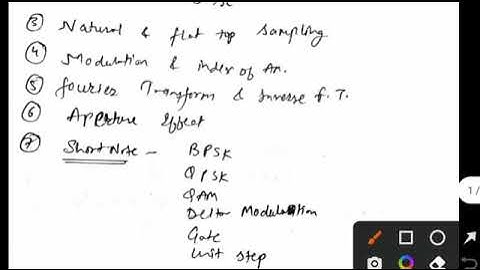 ③ Natural & flat top sampling
④ Modulation & index of Am.
⑤ fourier Transform & Inverse f.T.
⑥ Aperture Effect
⑦ Short Note - BPSK
QPSK
QAM
Delta Modulation
Gate
Unit step
1/